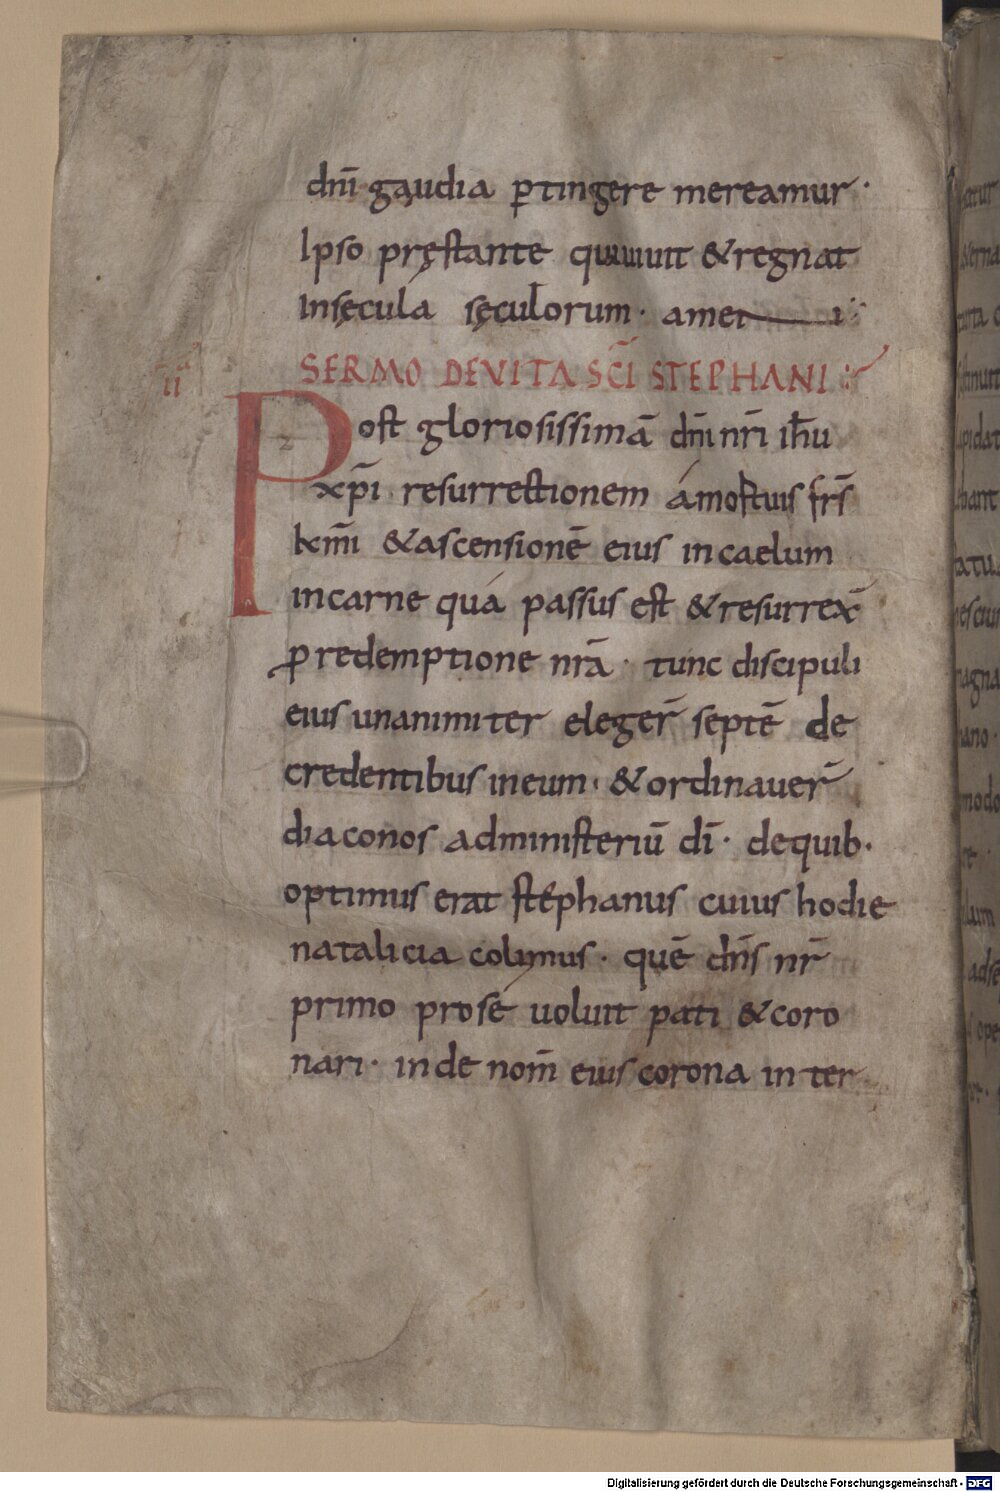 dnī gaudia ꝑtingere mereamur·
Ipso pręstante quiuiuit & regnat
Insęcula sęculorum· amen
II
SERMO DEVITA SC̄I STEPHANI
Post gloriosissimā dn̄i nr̄i ih̄u
xp̄i resurrectionem
km̄i & ascensionē eius incaelum
incarne quá passus est & resurrex̄
ꝓ redemptione nr̄a· tunc discipuli
eius unanimiter eleger̄ septē de
credentibus ineum· & ordinauer̄
diaconos administeriū dī· dequib·
optimus erat stéphanus cuius hodie
natalicia colimus· quē dn̄s nr̄
primo prosé uoluit pati & coro
nari· inde nom̄ eius corona inter
Digitalisierung gefördert durch die Deutsche Forschungsgemeinschaft - DFG